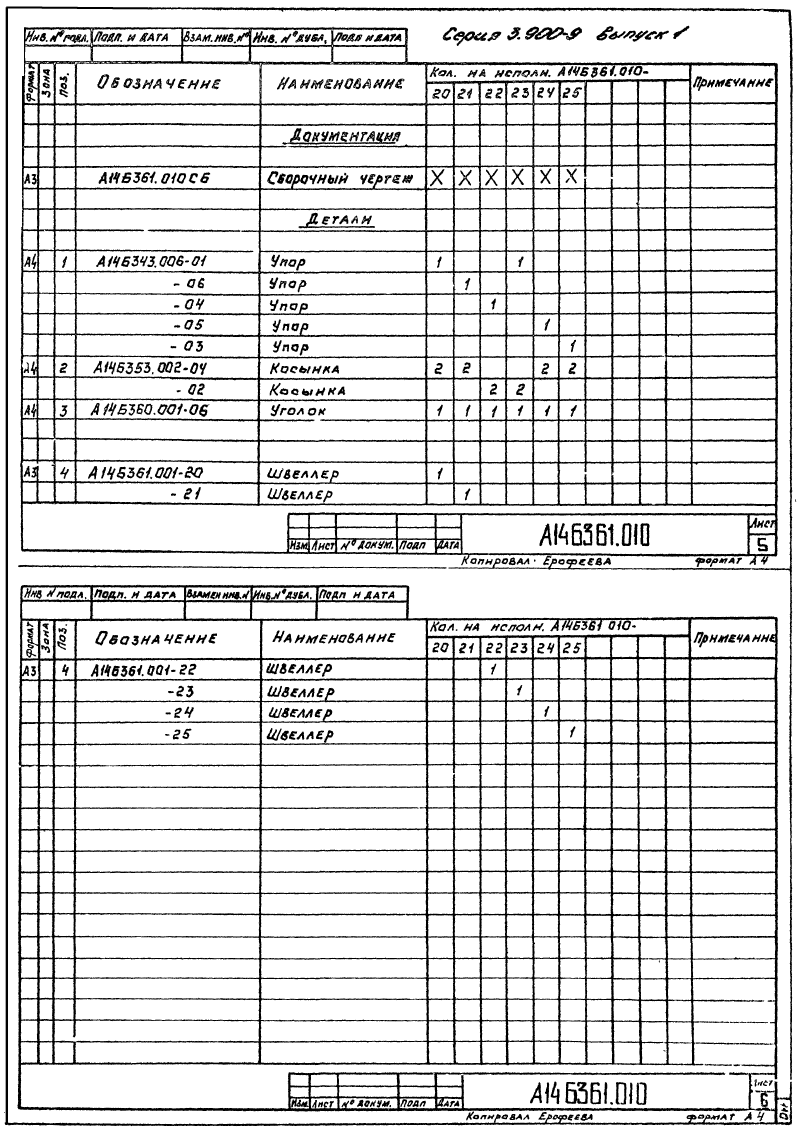 Серия 3.900-9 Выпуск 1
Инв. № подл. Подп. и дата Взам. инв. № Инв. № дубл. Подп и дата
Формат Зона Поз. Обозначение Наименование Кол. на исполн. А14Б361.010- Примечание
20 21 22 23 24 25
Документация
А3 А14Б361.010СБ Сборочный чертеж X X X X X X
Детали
А4 1 А14Б343.006-01 Упор 1 1
-06 Упор 1
-04 Упор 1
-05 Упор 1
-03 Упор 1
А4 2 А14Б353.002-04 Косынка 2 2 2 2
-02 Косынка 2 2
А4 3 А14Б360.001-06 Уголок 1 1 1 1 1 1
А3 4 А14Б361.001-20 Швеллер 1
-21 Швеллер 1
Изм Лист № докум. Подп Дата А14Б361.010 Лист 5
Копировал Ерофеева формат А4
Инв № подл. Подп. и дата Взамен инв. № Инв. № дубл. Подп и дата
Формат Зона Поз. Обозначение Наименование Кол. на исполн. А14Б361 010- Примечание
20 21 22 23 24 25
А3 4 А14Б361.001-22 Швеллер 1
-23 Швеллер 1
-24 Швеллер 1
-25 Швеллер 1
Изм Лист № докум. Подп Дата А14Б361.010 Лист 6
Копировал Ерофеева формат А4